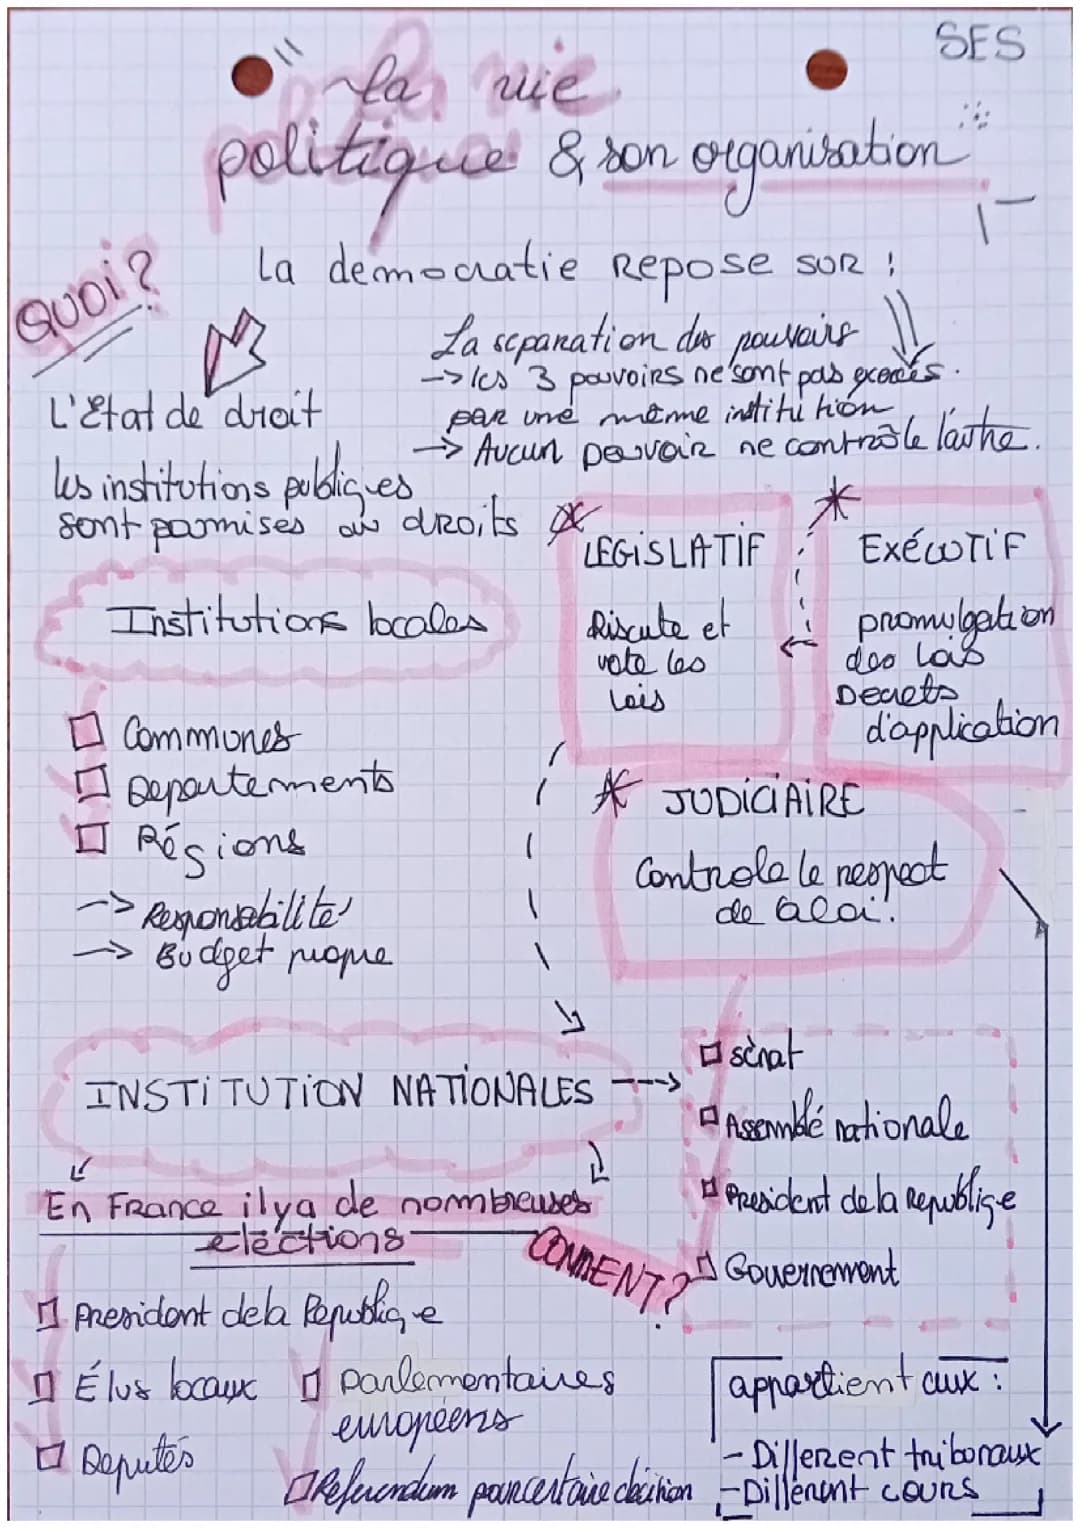 SES
la vie
politique & son organisation
QUOI ?
La democratie REPOSE SUR :
La separation des pouvoirs
-> les 3 pouvoirs ne sont pas exercés
par une même institution
-> Aucun pouvoir ne contrôle l'autre.
L'Etat de droit
les institutions publiques
sont parmises au droits
LEGISLATIF
Discute et
vote les
lois
EXÉCUTIF
promulgation
des lois
Decrets
d'application
Institutions locales
Communes
Departements
Régions
-> Responsabilité
-> Budget propre
JUDICIAIRE
Controle le respect
de la loi.
INSTITUTION NATIONALES
sénat
Assemblé nationale
President de la Republique
Gouvernement
En France il y a de nombreuses
elections
COMMENT ?
President de la Republique
Élus locaux
Deputés
Parlementaires
européens
Referendum pour certaine décision
appartient aux :
- Different tribonaux
- Different cours